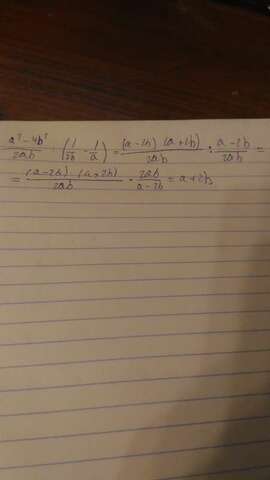 (a² - 4b²)/(2ab) : (1/(2b) - 1/a) = ((a-2b)·(a+2b))/(2ab) : (a-2b)/(2ab) =
= ((a-2b)·(a+2b))/(2ab) · (2ab)/(a-2b) = a+2b